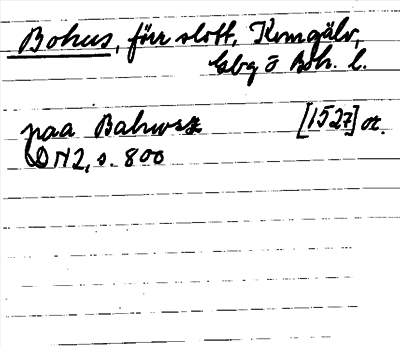 Bohus, förr slott, Kungälv,
Gbg o Boh. l.
paa Bahus [1527] or.
DN2, s. 800